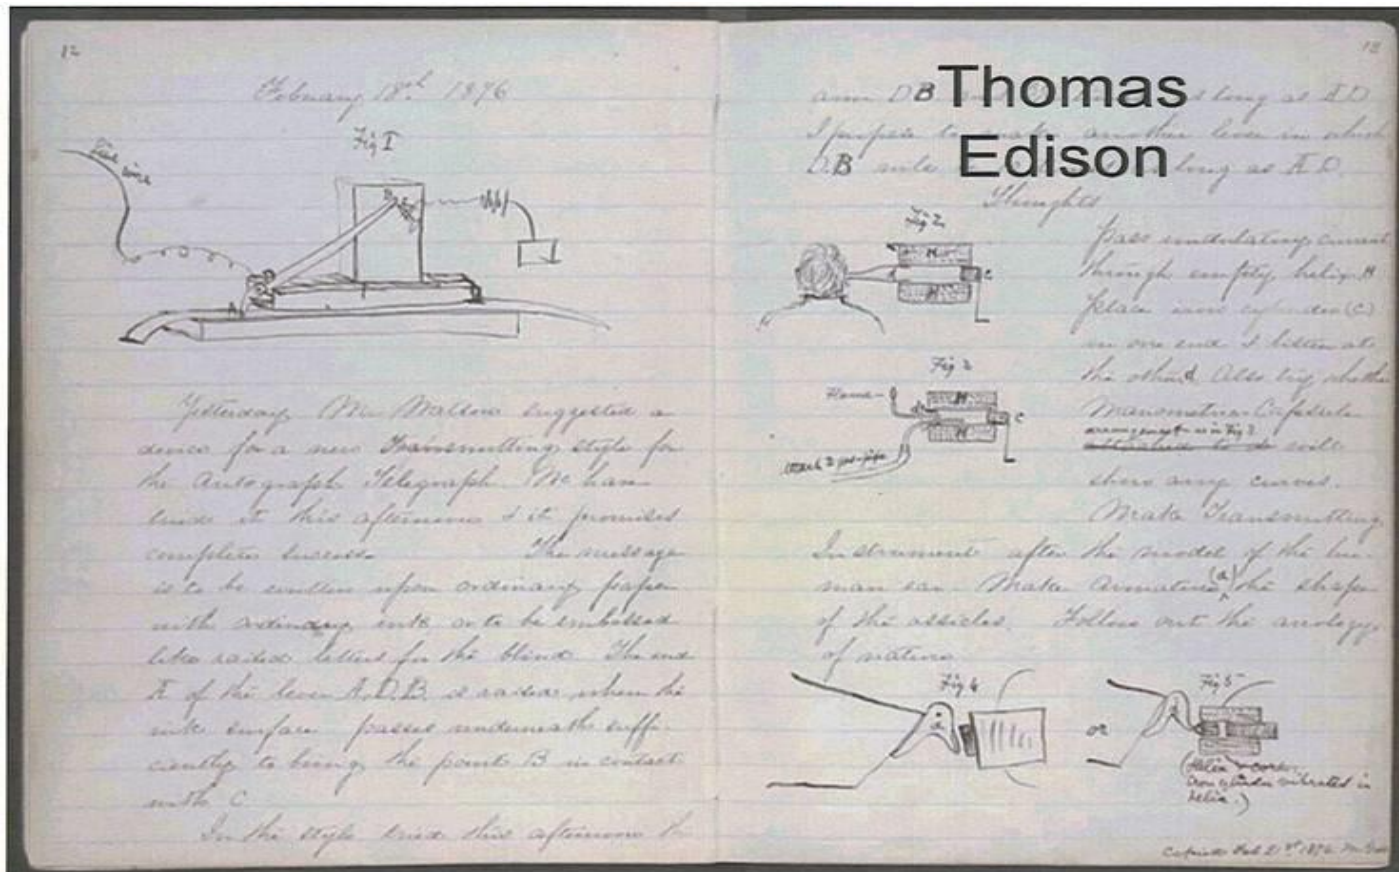 12
February 18th 1876
Fig 1
Fine wire
A
B
Yesterday Mr Watson suggested a
device for a new Transmitting style for
the Autograph Telegraph. We have
tried it this afternoon & it promises
complete success. The message
is to be written upon ordinary paper
with ordinary ink or to be embossed
like raised letters for the blind. The end
A of the lever A.D.B. is raised when the
ink surface passes underneath suffi-
ciently to bring the point B in contact
with C
In the style tried this afternoon the
13
Thomas
Edison
arm DB as long as AD
I propose to make another lever in which
D.B will long as A.D.
Thoughts
Fig 2
H
H
C
Pass undulating current
through empty helix H
place iron cylinder (C)
in one end & listen at
the other. Also try whether
Manometric Capsule
arrangement as in Fig 3
will
show any curves.
Fig 3
Flame
H
H
C
gas-pipe
Make Transmitting
Instrument after the model of the hu-
man ear. Make armature (a) the shape
of the ossicles. Follow out the analogy
of nature.
Fig 4
a
or
Fig 5
(Helix & core.
Iron cylinder vibrated in
helix.)
Copied Feb 21st 1876